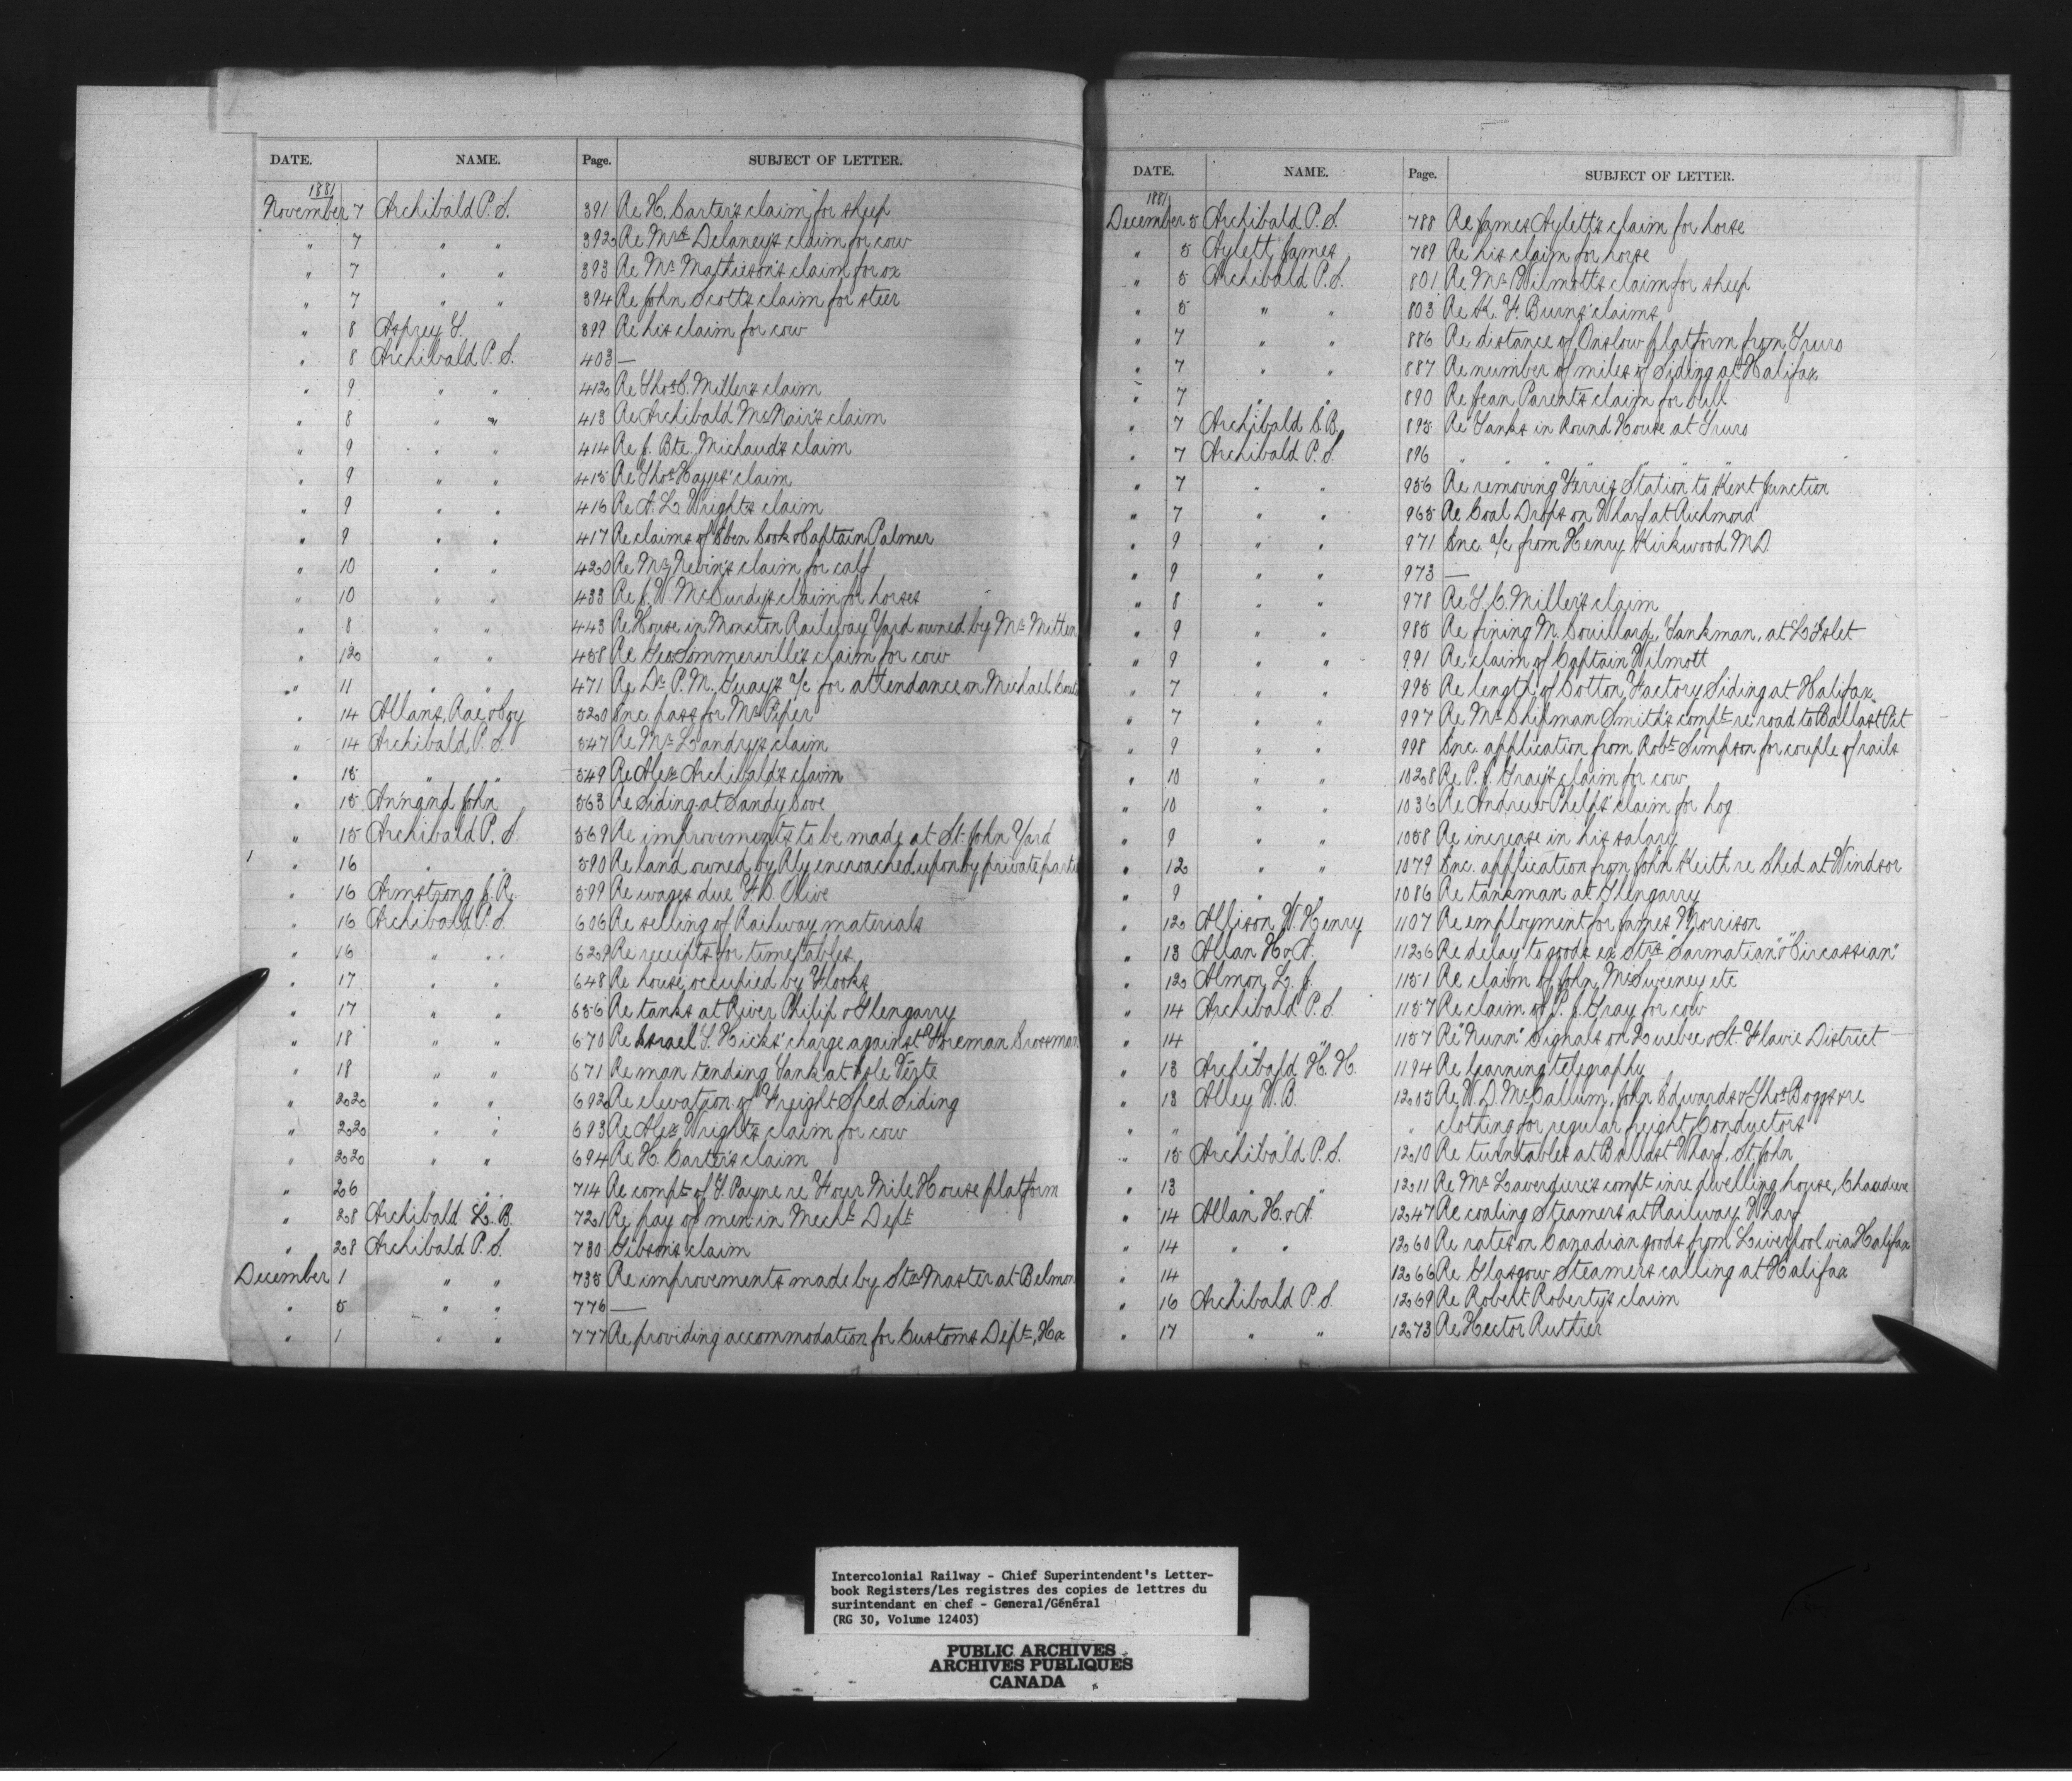 DATE. NAME. Page. SUBJECT OF LETTER.
1881
November 7 Archibald P. S. 391 Re H. Carter's claim for sheep
" 7 " " 392 Re Mrs Delaney's claim for cow
" 7 " " 393 Re Mr Mathieson's claim for ox
" 7 " " 394 Re John Scott's claim for steer
" 8 Asprey T. 399 Re his claim for cow
" 8 Archibald P. S. 403 —
" 9 " " 412 Re Thos C. Miller's claim
" 8 " " 413 Re Archibald McNair's claim
" 9 " " 414 Re J. Bte Michaud's claim
" 9 " " 415 Re Thos Hayes' claim
" 9 " " 416 Re A. L. Wright's claim
" 9 " " 417 Re claims of Eben Cook & Captain Palmer
" 10 " " 420 Re Mr Nevin's claim for calf
" 10 " " 433 Re J. W. McCurdy's claim for horses
" 8 " " 443 Re House in Moncton Railway Yard owned by Mr Mitten
" 12 " " 458 Re Geo Sommerville's claim for cow
" 11 " " 471 Re Dr P. M. Guay's a/c for attendance on Michael
" 14 Allans, Rae & Coy 520 Enc. pass for Mr Piper
" 14 Archibald P. S. 547 Re Mr Landry's claim
" 15 " " 549 Re Alex Archibald's claim
" 15 Annand John 563 Re Siding at Sandy Cove
" 15 Archibald P. S. 569 Re improvements to be made at St. John Yard
" 16 " " 590 Re land owned by Rly encroached upon by private parties
" 16 Armstrong J. R. 599 Re wages due F. D. Olive
" 16 Archibald P. S. 606 Re selling of Railway materials
" 16 " " 629 Re receipts for time tables
" 17 " " 648 Re house occupied by Flooks
" 17 " " 656 Re tanks at River Philip & Glengarry
" 18 " " 670 Re Israel T. Hicks' charge against Foreman Crossman
" 18 " " 671 Re man tending Tank at Isle Verte
" 22 " " 692 Re elevation of Freight Shed Siding
" 22 " " 693 Re Alex Wright's claim for cow
" 22 " " 694 Re H. Carter's claim
" 26 " " 714 Re compt of T. Payne re Four Mile House platform
" 28 Archibald L. B. 721 Re pay of men in Mechl Dept
" 28 Archibald P. S. 730 Gibson's claim
December 1 " " 735 Re improvements made by Stn Master at Belmon
" 5 " " 776 —
" 1 " " 777 Re providing accommodation for Customs Dept, Hx
DATE. NAME. Page. SUBJECT OF LETTER.
1881
December 5 Archibald P. S. 788 Re James Aylett's claim for horse
" 5 Aylett James 789 Re his claim for horse
" 5 Archibald P. S. 801 Re Mr Wilmott's claim for sheep
" 5 " " 803 Re K. F. Burns' claims
" 7 " " 886 Re distance of Onslow platform from Truro
" 7 " " 887 Re number of miles of Siding at Halifax
" 7 " " 890 Re Jean Parent's claim for bull
" 7 Archibald S. B. 895 Re Tanks in Round House at Truro
" 7 Archibald P. S. 896 " " " " " "
" 7 " " 956 Re removing Ferris Station to Kent Junction
" 7 " " 965 Re Coal Drops on Wharf at Richmond
" 9 " " 971 Enc. a/c from Henry Kirkwood M.D.
" 9 " " 973 —
" 8 " " 978 Re T. C. Miller's claim
" 9 " " 985 Re fining M. Couillard, Tankman, at L'Islet
" 9 " " 991 Re claim of Captain Wilmott
" 7 " " 995 Re length of Cotton Factory Siding at Halifax
" 7 " " 997 Re Mr Chipman Smith's compt re road to Ballast Pit
" 9 " " 998 Enc. application from Robt Simpson for couple of rails
" 10 " " 1028 Re P. J. Gray's claim for cow
" 10 " " 1036 Re Andrew Phelps' claim for hog
" 9 " " 1058 Re increase in his salary
" 12 " " 1079 Enc. application from John Keith re Shed at Windsor
" 9 " " 1086 Re tankman at Glengarry
" 12 Allison W. Henry 1107 Re employment for James Morrison
" 13 Allan H. & A. 1126 Re delay to goods ex Strs "Sarmatian" & "Circassian"
" 12 Almon L. J. 1151 Re claim of John McSweeney etc
" 14 Archibald P. S. 1157 Re claim of P. J. Gray for cow
" 14 " " 1157 Re "Nunn" Signals on Quebec & St. Flavie District
" 13 Archibald H. H. 1194 Re learning telegraphy
" 13 Alley W. B. 1205 Re W. D. McCallum, John Edwards & Thos Boggs re
" " " " clothing for regular freight Conductors
" 15 Archibald P. S. 1210 Re turntables at Ballast Wharf, St. John
" 13 " " 1211 Re Mr Laverdure's compt in re dwelling house, Chaudiere
" 14 Allan H. & A. 1247 Re coaling Steamers at Railway Wharf
" 14 " " 1260 Re rates on Canadian goods from Liverpool via Halifax
" 14 " " 1266 Re Glasgow Steamers calling at Halifax
" 16 Archibald P. S. 1269 Re Robert Roberty's claim
" 17 " " 1273 Re Hector Ruthier
Intercolonial Railway - Chief Superintendent's Letter-
book Registers/Les registres des copies de lettres du
surintendant en chef - General/Général
(RG 30, Volume 12403)
PUBLIC ARCHIVES
ARCHIVES PUBLIQUES
CANADA